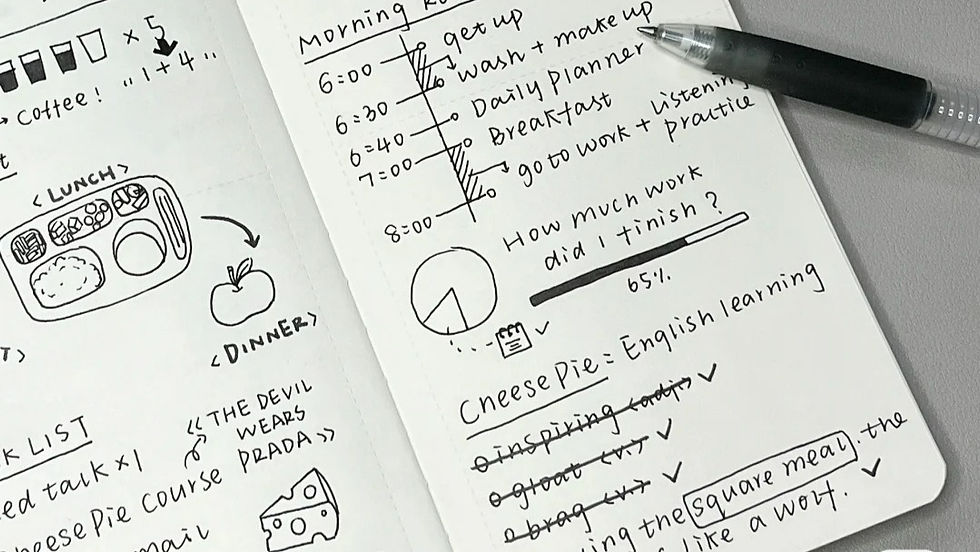 × 5
"1+4"
→ Coffee!
<LUNCH>
<DINNER>
T>
K LIST
ed talk ×1
heesePie course
mail
<< THE DEVIL
WEARS
PRADA >>
Morning
6:00
get up
wash + make up
6:30
6:40
Daily Planner
7:00
Breakfast
go to work + Listening
practice
8:00
How much work
did I finish ?
65%
CheesePie = English learning
inspiring <adj.> ✓
gloat <v.> ✓
brag <v.> ✓
ing the square meal. the
like a wolf. ✓